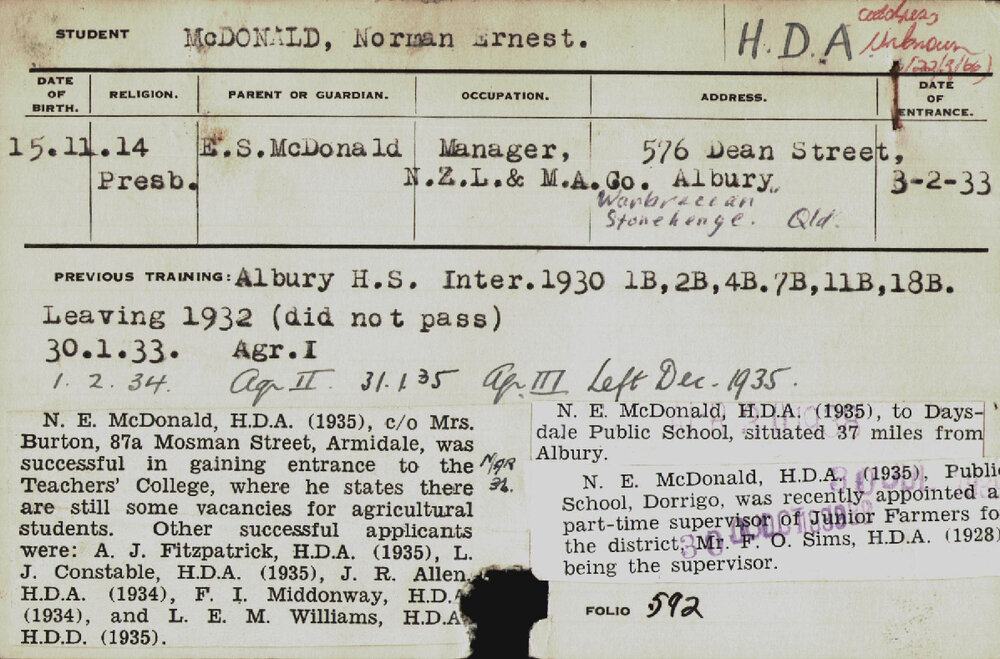 STUDENT McDONALD, Norman Ernest. H.D.A address Unknown
DATE OF BIRTH. RELIGION. PARENT OR GUARDIAN. OCCUPATION. ADDRESS. DATE OF ENTRANCE.
15.11.14 E.S.McDonald Manager, 576 Dean Street,
Presb. N.Z.L.& M.A.Co. Albury 3-2-33
Stonehenge. Qld.
PREVIOUS TRAINING: Albury H.S. Inter.1930 1B,2B,4B.7B,11B,18B.
Leaving 1932 (did not pass)
30.1.33. Agr.I
1. 2. 34. Agr II. 31.1.35 Agr III Left Dec. 1935.
N. E. McDonald, H.D.A. (1935), c/o Mrs.
Burton, 87a Mosman Street, Armidale, was
successful in gaining entrance to the
Teachers' College, where he states there
are still some vacancies for agricultural
students. Other successful applicants
were: A. J. Fitzpatrick, H.D.A. (1935), L.
J. Constable, H.D.A. (1935), J. R. Allen,
H.D.A. (1934), F. I. Middonway, H.D.A
(1934), and L. E. M. Williams, H.D.A
H.D.D. (1935).
MAR
36.
N. E. McDonald, H.D.A. (1935), to Days-
dale Public School, situated 37 miles from
Albury.
N. E. McDonald, H.D.A. (1935), Public
School, Dorrigo, was recently appointed a
part-time supervisor of Junior Farmers fo
the district, Mr. F. O. Sims, H.D.A. (1928)
being the supervisor.
FOLIO 592